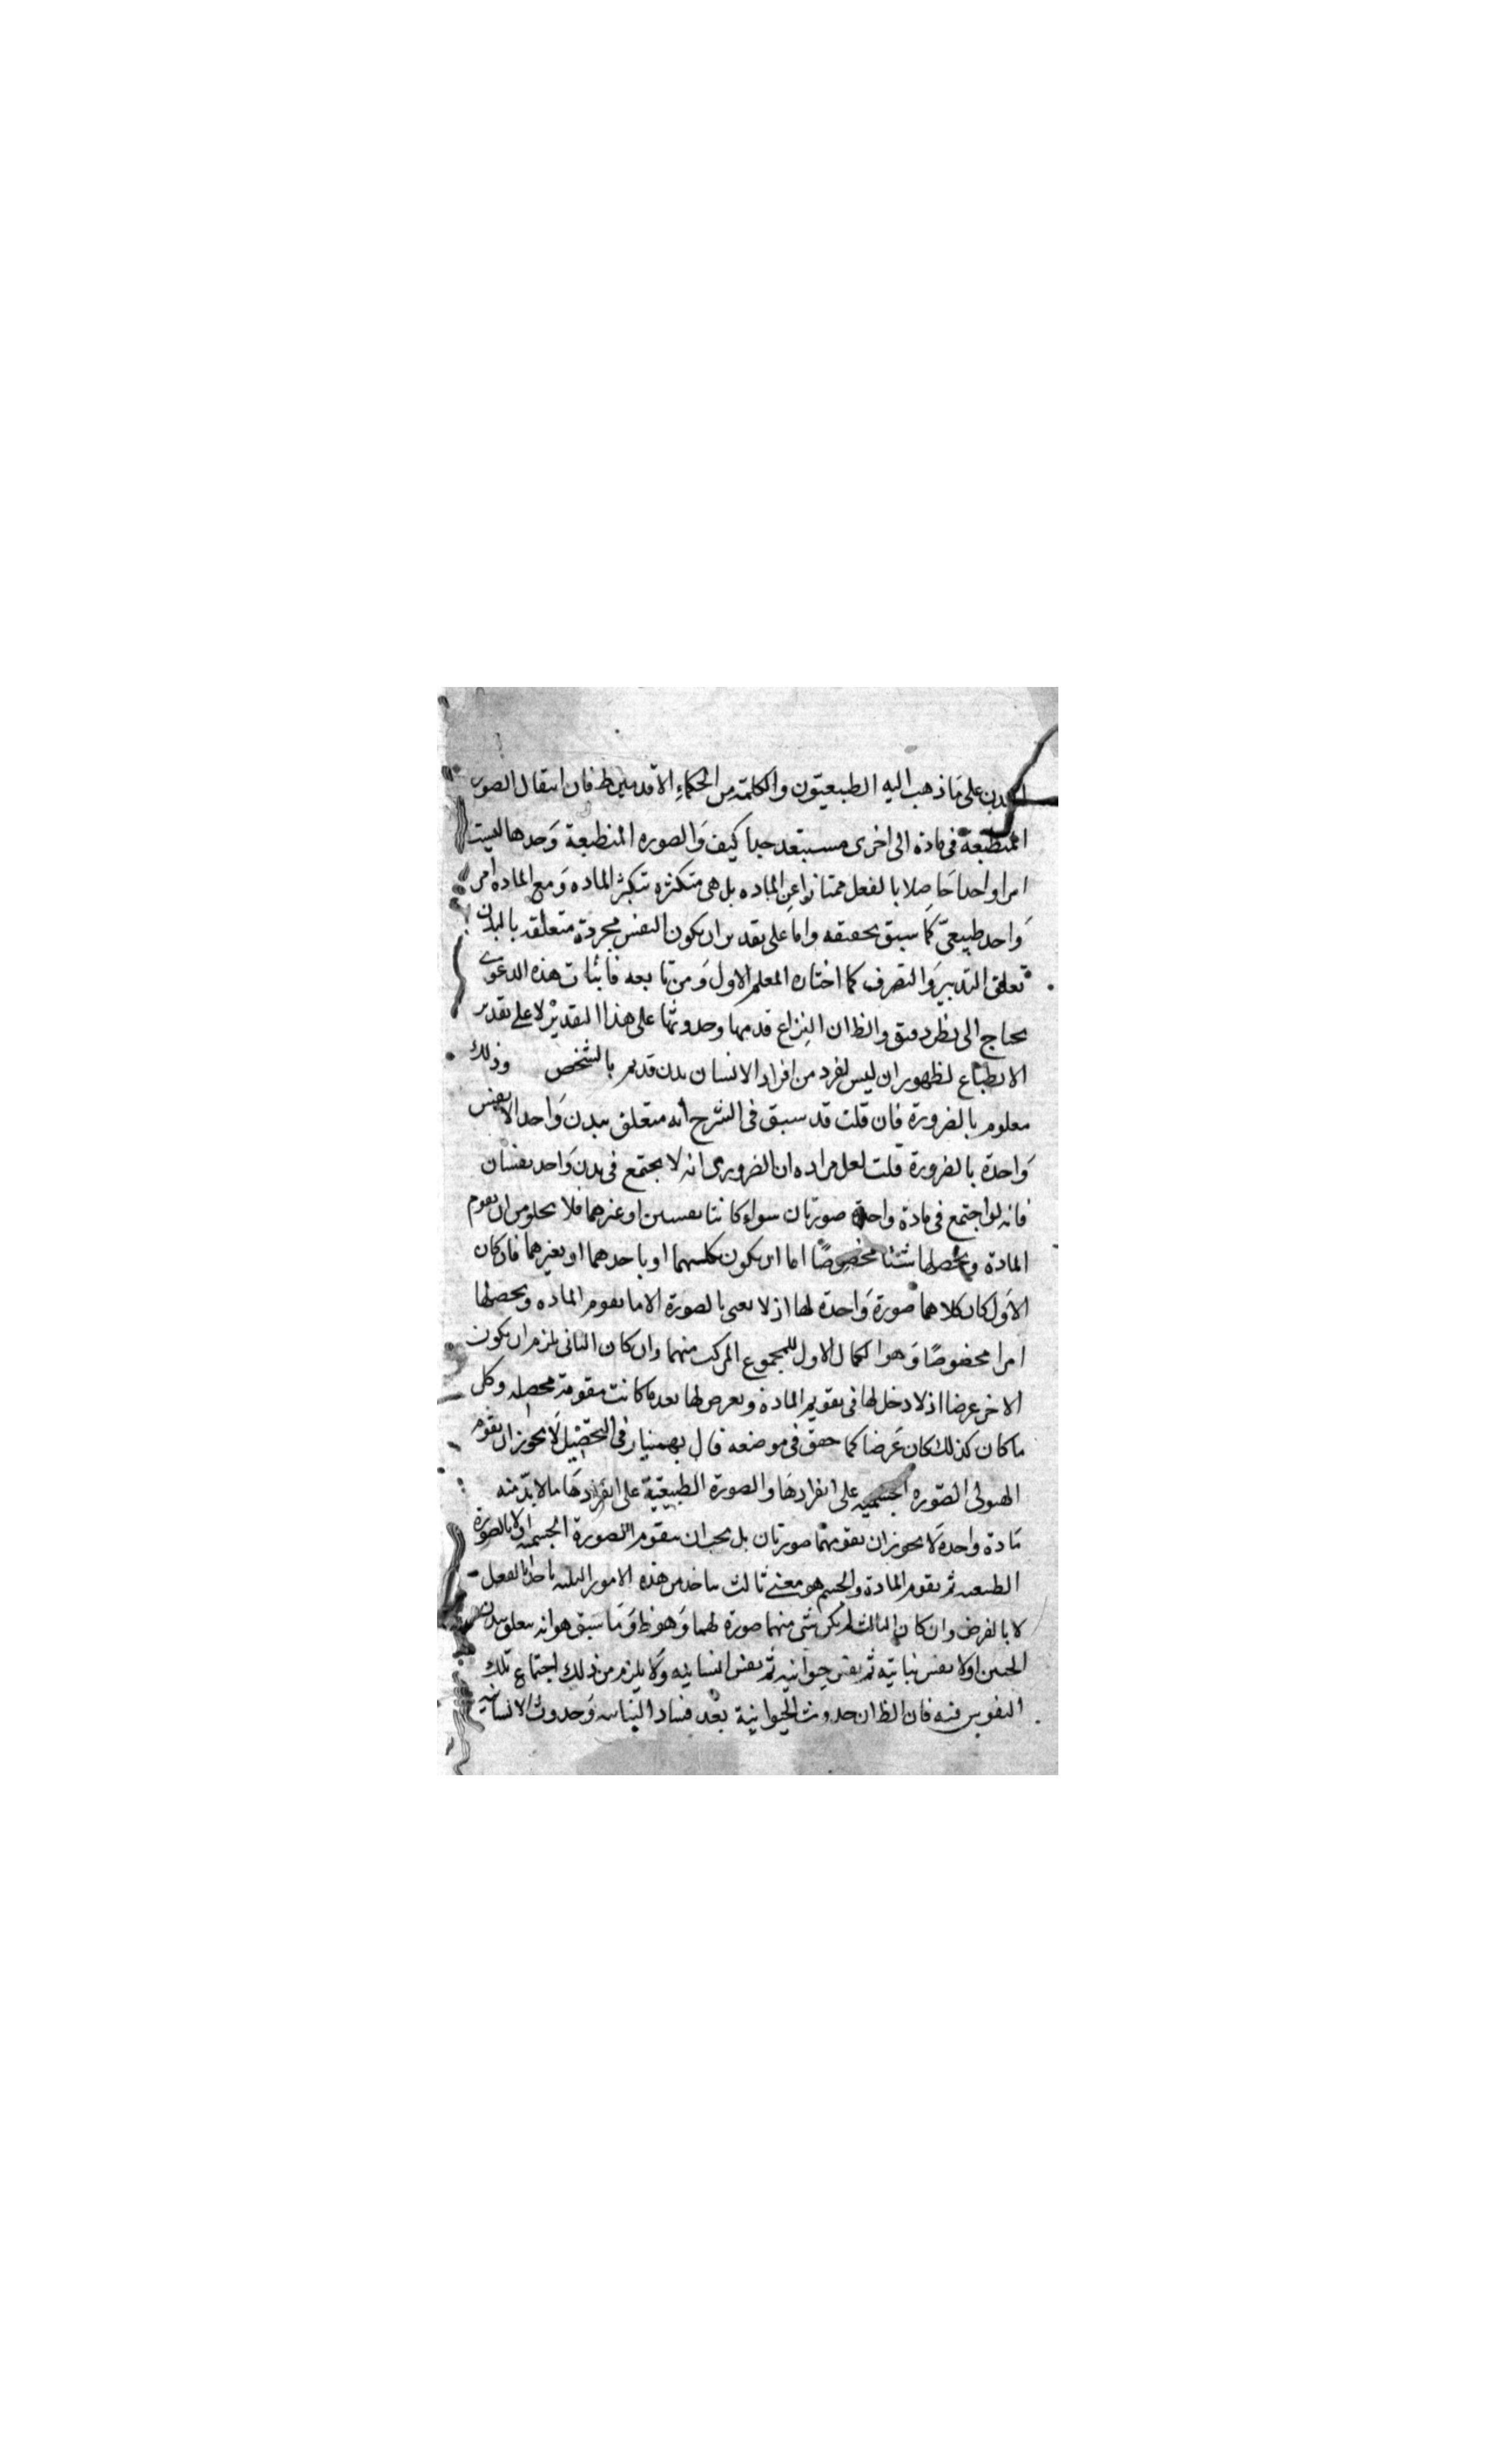 البدن على ما ذهب اليه الطبيعيون والكلمة من الحكماء الاقدمين ظ فان انتقال الصور
المنطبعة فى مادة الى اخرى مستبعد جدا كيف والصوره المنطبعة وحدها ليست
امرا واحدا حاصلا بالفعل ممتازا عن الماده بل هى متكثره بتكثر الماده ومع الماده امر
واحد طبيعى كما سبق تحقيقه واما على تقدير ان يكون النفس مجردة متعلقه بالبدن
تعلق التدبير والتصرف كما اختاره المعلم الاول ومن تابعه فاثبات هذه الدعوى
يحتاج الى نظر دقيق والظ ان النزاع قدمها وحدوثها على هذا التقدير لا على تقدير
الانطباع لظهور ان ليس لفرد من افراد الانسان بدن قديم بالشخص وذلك
معلوم بالضرورة فان قلت قد سبق فى الشرح انه متعلق ببدن واحد الا نفس
واحدة بالضرورة قلت لعل مراده ان الضرورى انه لا يجتمع فى بدن واحد نفسان
فانه لو اجتمع فى مادة واحدة صورتان سواء كانتا نفسين او غيرهما فلا يخلو من ان تقوم
المادة وتحصلها شيئا مخصوصا اما ان يكون بكليهما او باحدهما او بغيرهما فان كان
الاول كان كلاهما صورة واحدة لها اذ لا نعنى بالصورة الا ما تقوم الماده ويحصلها
امرا مخصوصا وهو الكمال الاول للمجموع المركب منهما وان كان الثانى يلزم ان يكون
الاخر عرضا اذ لا دخل لها فى تقويم المادة وتعرض لها بعد ما كانت متقومة محصله وكل
ما كان كذلك كان عرضا كما حقق فى موضعه قال بهمنيار فى التحصيل لا يجوز ان يقوم
الهيولى الصوره الجسميه على انفرادها والصورة الطبيعية على انفرادها ما لا بد منه
مادة واحده لا يجوز ان تقومهما صورتان بل يجب ان يتقوم الصورة الجسميه اولا بالصورة
الطبيعيه ثم تقوم المادة والجسم هو معنى ثالث ياخذ من هذه الامور الثلثه باحد بالفعل
لا بالفرض وان كان الثالث لم يكن شى منهما صورة لهما وهو ظ وما سبق هو انه يتعلق ببدن
الجنين اولا نفس نباتيه ثم نفس حيوانيه ثم نفس انسانيه ولا يلزم من ذلك اجتماع تلك
النفوس فيه فان الظ ان حدوث الحيوانية بعد فساد النباتيه وحدوث الانسانيه